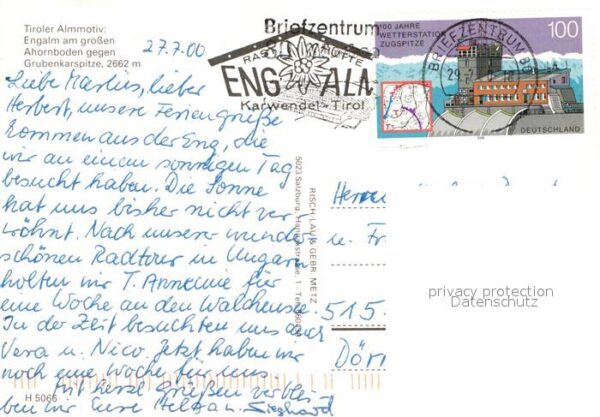 Tiroler Almmotiv:
Engalm am großen
Ahornboden gegen
Grubenkarspitze, 2662 m
27.7.00
Liebe Marlies, lieber
Herbert, unsere Feriengrüße
kommen aus der Eng, die
wir an einem sonnigen Tag
besucht haben. Die Sonne
hat uns bisher nicht ver
wöhnt. Nach unserer wunder
schönen Radtour in Ungarn
holten wir T. Annemie für
eine Woche an den Walchensee.
In der Zeit besuchten uns auch
Vera u. Nico. Jetzt haben wir
noch eine Woche für uns.
Mit herzl. Grüßen verblei
ben wir Eure Helga u. Sieghard
H 5065
Briefzentrum
RAST HÜTTE
ENG ALM
Karwendel-Tirol
100 JAHRE
WETTERSTATION
ZUGSPITZE
100
BRIEFZENTRUM
DEUTSCHLAND
RISCH-LAU & GEBR. METZ
5023 Salzburg
Herrn
u. Fr
515
Dör
privacy protection
Datenschutz